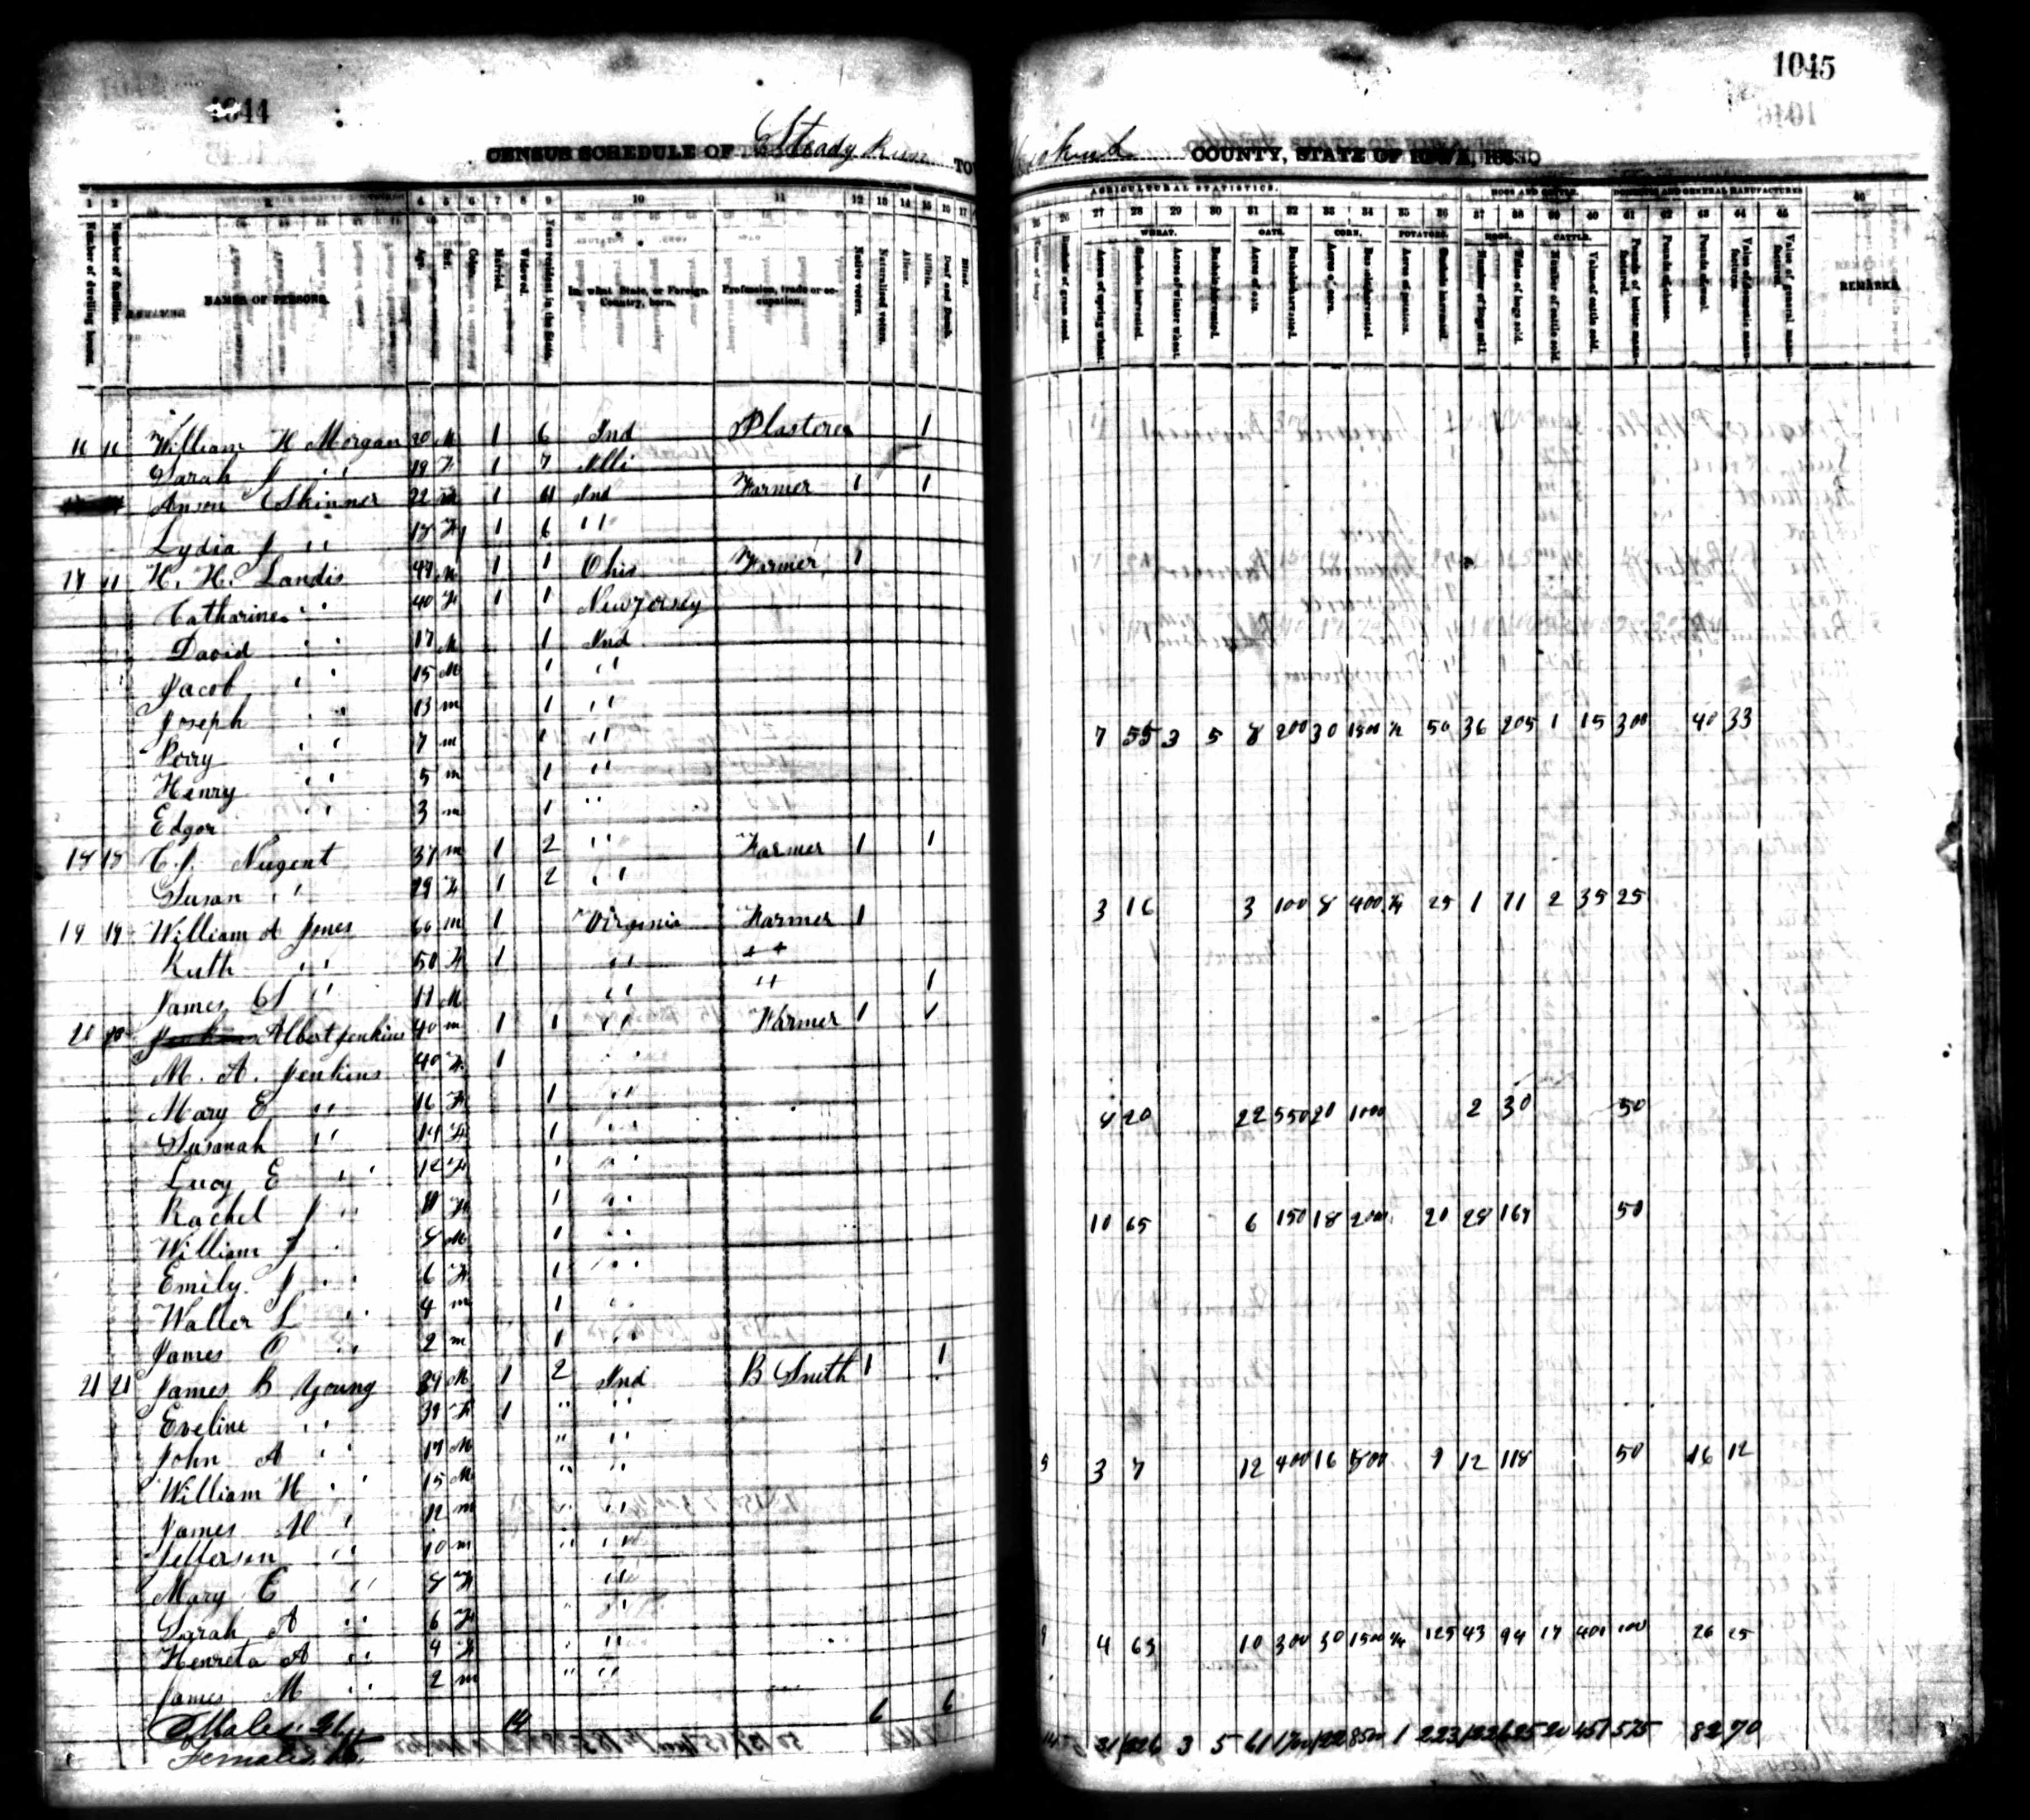 1044
CENSUS SCHEDULE OF Steady Run TO
1 2 3 4 5 6 7 8 9 10 11 12 13 14 15 16 17
Number of dwelling houses. Number of families. NAMES OF PERSONS. Age. Sex. Color. Married. Widowed. Years resident in the State. In what State, or Foreign Country, born. Profession, trade or occupation. Native voters. Naturalized voters. Aliens. Militia. Deaf and Dumb. Blind.
16 16 William H Morgan 20 M 1 6 Ind Plasterer 1
Sarah J " 19 F 1 7 Illi
Anson Skinner 22 M 1 Ind Farmer 1 1
Lydia J " 18 F 1 6 "
17 H. H. Landis 1 1 Ohio Farmer 1
Catharine " 40 F 1 1 New Jersey
David " 17 M 1 Ind
Jacob " 15 M 1 "
Joseph " 13 m 1 "
Perry " 7 m 1 "
Henry " 5 m 1 "
Edgar " 3 m 1 "
18 18 C. J. Nugent 37 m 1 2 " Farmer 1 1
Susan " 29 F 1 2 "
19 19 William A Jones 60 m 1 Virginia Farmer 1
Ruth " 50 F 1 " "
James S " M " " 1
20 20 Albert Jenkins 40 m 1 1 " Farmer 1 1
M. A. Jenkins 40 F 1 "
Mary E " 16 F 1 "
Susanah " 14 F 1 "
Lucy E " 12 F 1 "
Rachel J " F 1 "
William J " 8 M 1 "
Emily J " 6 F 1 "
Walter L " 4 m 1 "
James O " 2 m 1 "
21 21 James B Young 39 M 1 2 Ind B Smith 1 1
Eveline " 39 F 1 " "
John A " 17 M " "
William H " 15 M " "
James M " 12 m " "
Jefferson " 10 m " "
Mary E " 8 F "
Sarah A " 6 F " "
Henreta A " 4 F " "
James M " 2 m " "
Males 14 6 6
Females
1045
COUNTY, STATE OF IOWA
AGRICULTURAL STATISTICS. HOGS AND CATTLE. DOMESTIC AND GENERAL MANUFACTURES
26 27 28 29 30 31 32 33 34 35 36 37 38 39 40 41 42 43 44 45 46
WHEAT. OATS. CORN. POTATOES. HOGS. CATTLE.
Bushels of grass seed. Acres of spring wheat. Bushels harvested. Acres of winter wheat. Bushels harvested. Acres of oats. Bushels harvested. Acres of corn. Bushels harvested. Acres of potatoes. Bushels harvested. Number of hogs sold. Value of hogs sold. Number of cattle sold. Value of cattle sold. Pounds of butter manufactured. Pounds of cheese. Pounds of wool. Value of domestic manufactures. Value of general manufactures. REMARKS.
7 55 3 5 8 200 30 1500 ½ 50 36 205 1 15 300 40 33
3 16 3 100 8 400 ¼ 25 1 11 2 35 25
4 20 22 550 20 1000 2 30 50
10 65 6 150 18 2000 20 28 167 50
3 7 12 400 16 1500 9 12 118 50 16 12
4 63 10 300 30 1500 ¼ 125 43 94 17 401 100 26 25
31 226 3 5 61 1700 122 8500 1 223 122 625 20 451 575 82 70